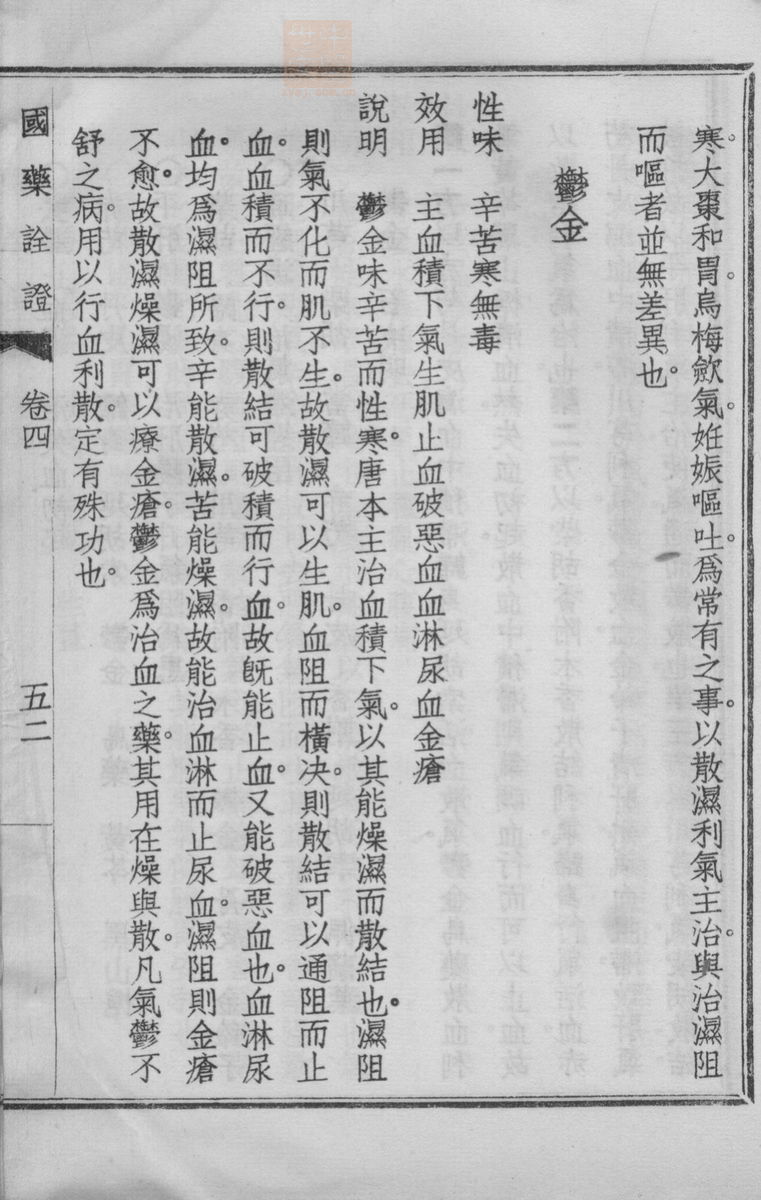 寒。大棗和胃。烏梅歛氣。姙娠嘔吐。爲常有之事。以散濕利氣主治。與治濕阻
而嘔者並無差異也。
鬱金
性味　辛苦寒無毒
效用　主血積下氣生肌止血破惡血血淋尿血金瘡
說明　鬱金味辛苦而性寒。唐本主治血積下氣。以其能燥濕而散結也。濕阻
則氣不化而肌不生。故散濕可以生肌。血阻而橫决。則散結可以通阻而止
血。血積而不行。則散結可破積而行血。故旣能止血。又能破惡血也。血淋尿
血。均爲濕阻所致。辛能散濕。苦能燥濕。故能治血淋而止尿血。濕阻則金瘡
不愈。故散濕燥濕可以療金瘡。鬱金爲治血之藥。其用在燥與散。凡氣鬱不
舒之病。用以行血利散。定有殊功也。
國藥詮證　卷四　五二